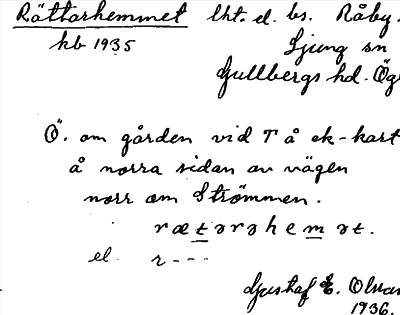 Rättarhemmet lht. el. bs. Råby.
kb 1935 Ljung sn
Gullbergs hd. Ög
Ö. om gården vid T å ek-kart
å norra sidan av vägen
norr om Strömmen.
rætərəhemət.
el. r---
Gustaf E.
1936.